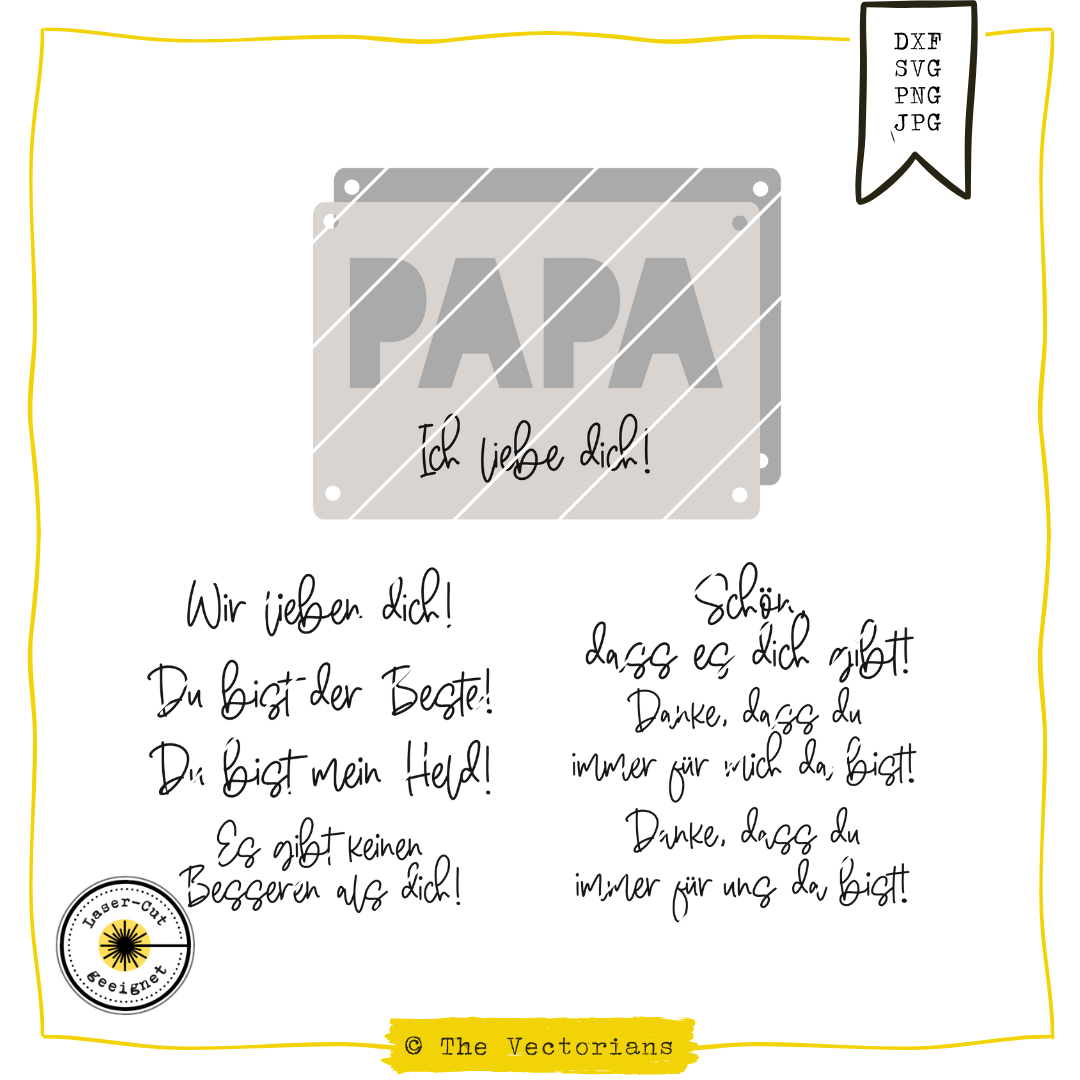 DXF
SVG
PNG
JPG
PAPA
Ich liebe dich!
Wir lieben dich!
Du bist der Beste!
Du bist mein Held!
Es gibt keinen
Besseren als dich!
Schön,
dass es dich gibt!
Danke, dass du
immer für mich da bist!
Danke, dass du
immer für uns da bist!
Laser-Cut
geeignet
© The Vectorians